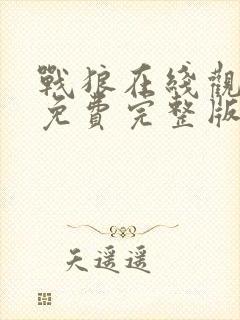 戰狼在綫觀
免費完整版
天遥遥